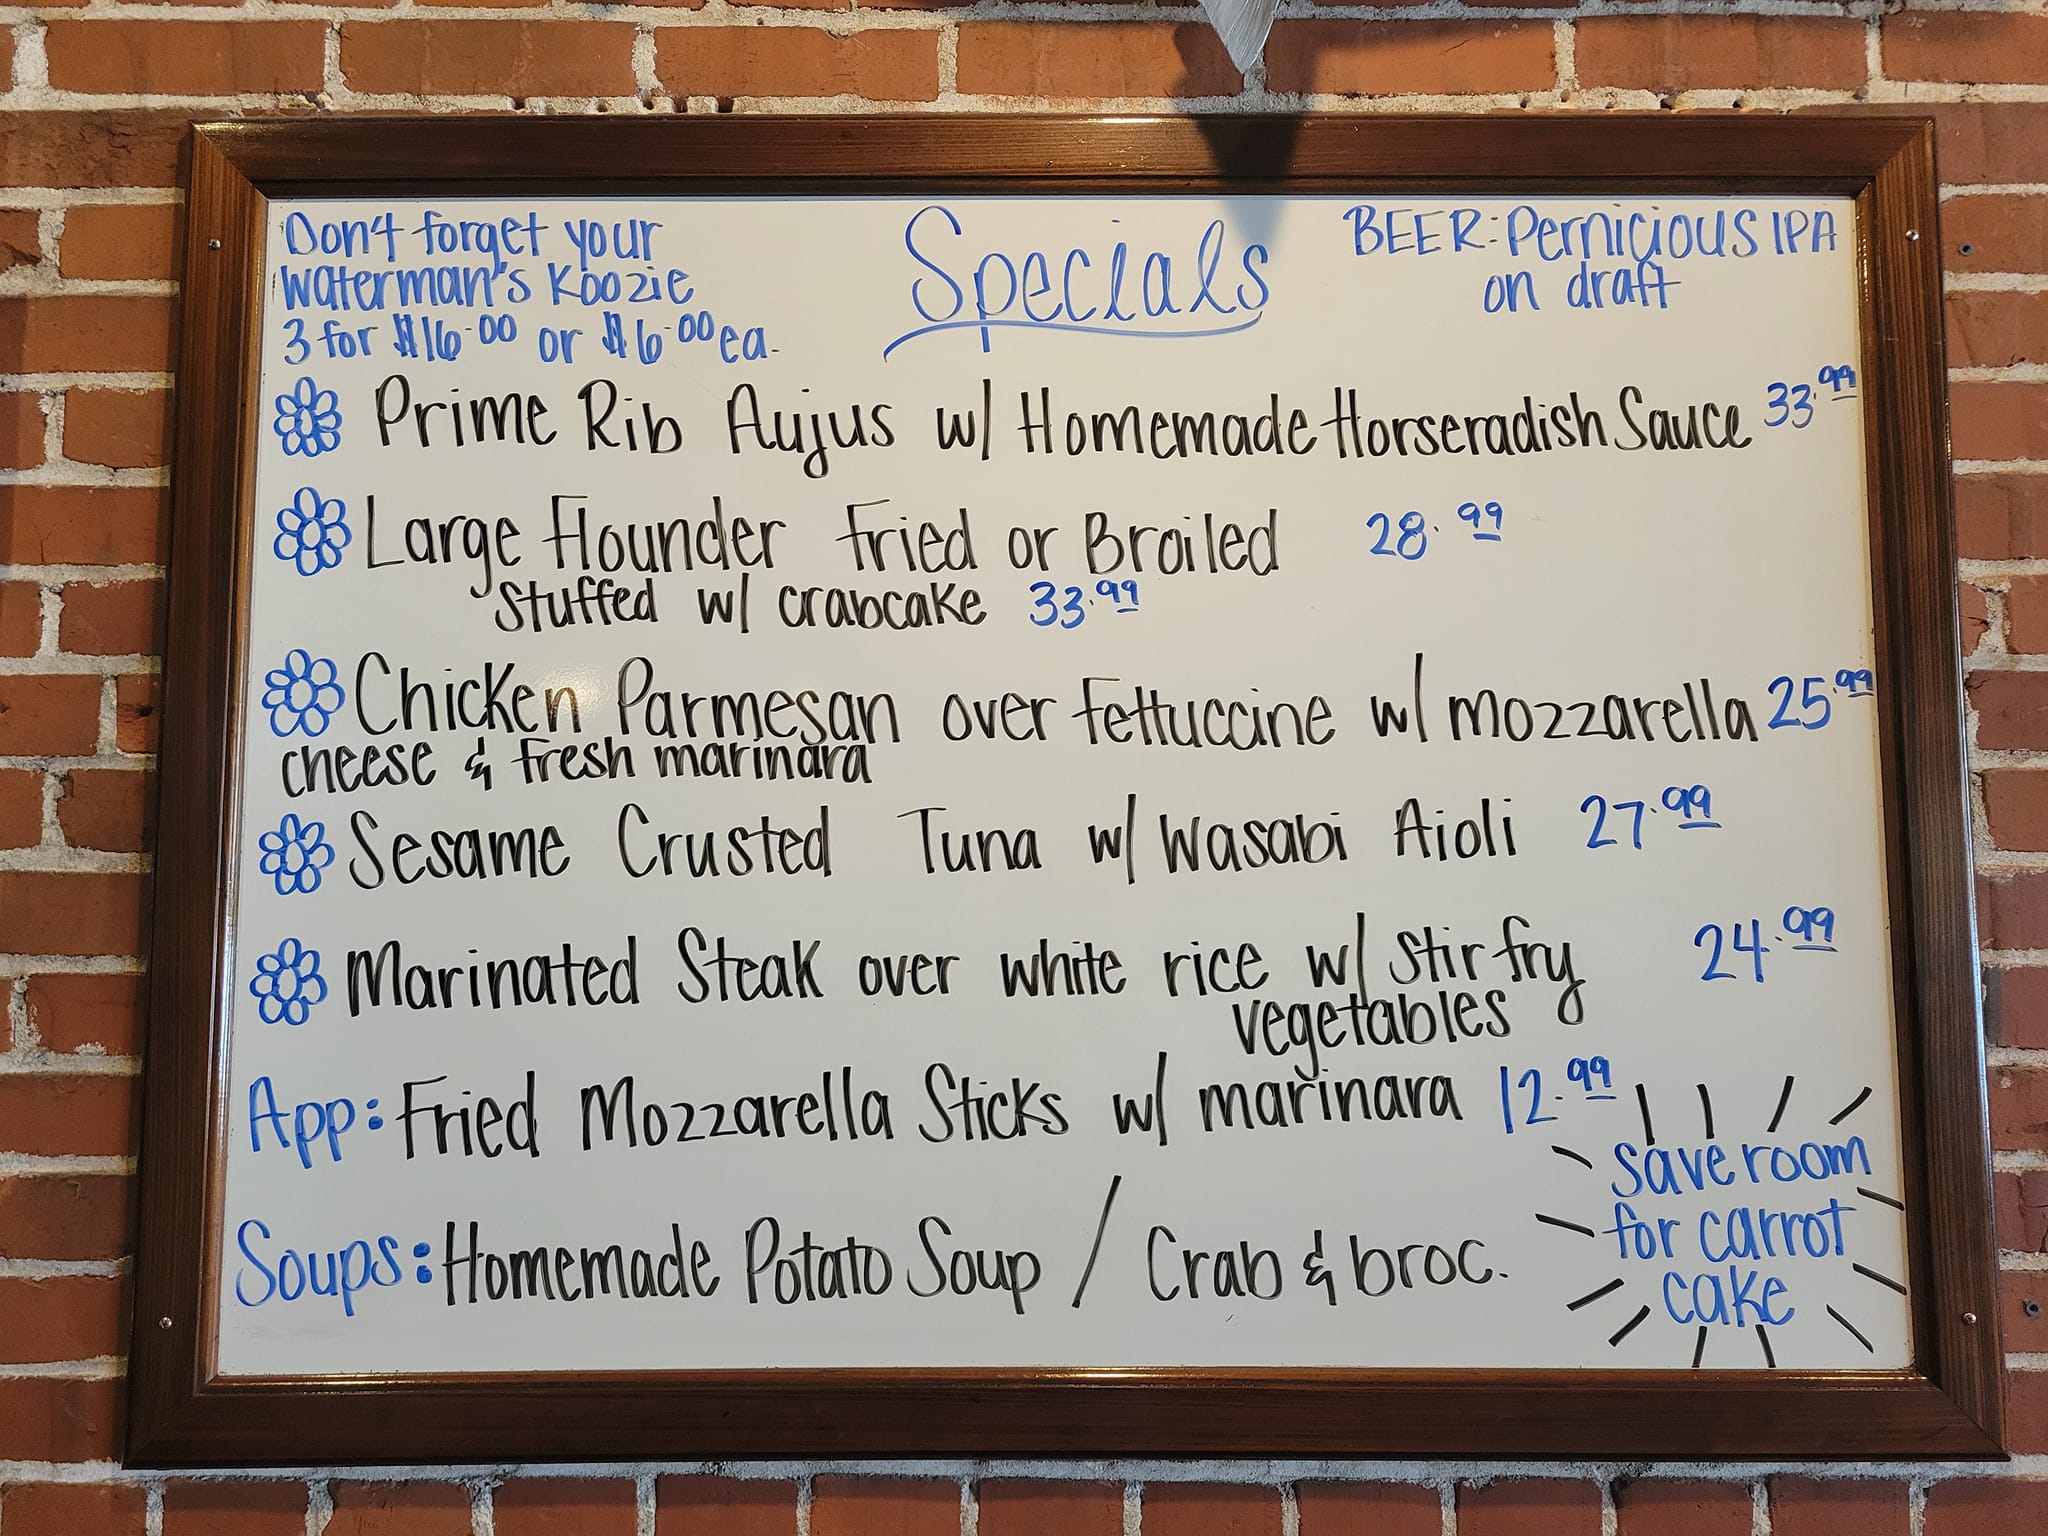 Don't forget your
Waterman's Koozie
3 for $16.00 or $6.00 ea.
Specials
BEER: Pernicious IPA
on draft
Prime Rib Aujus w/ Homemade Horseradish Sauce 33.99
Large Flounder Fried or Broiled 28.99
Stuffed w/ crabcake 33.99
Chicken Parmesan over fettuccine w/ mozzarella 25.99
cheese & fresh marinara
Sesame Crusted Tuna w/ Wasabi Aioli 27.99
Marinated Steak over white rice w/ stir fry 24.99
vegetables
App: Fried Mozzarella Sticks w/ marinara 12.99
Soups: Homemade Potato Soup / Crab & broc.
save room
for carrot
cake